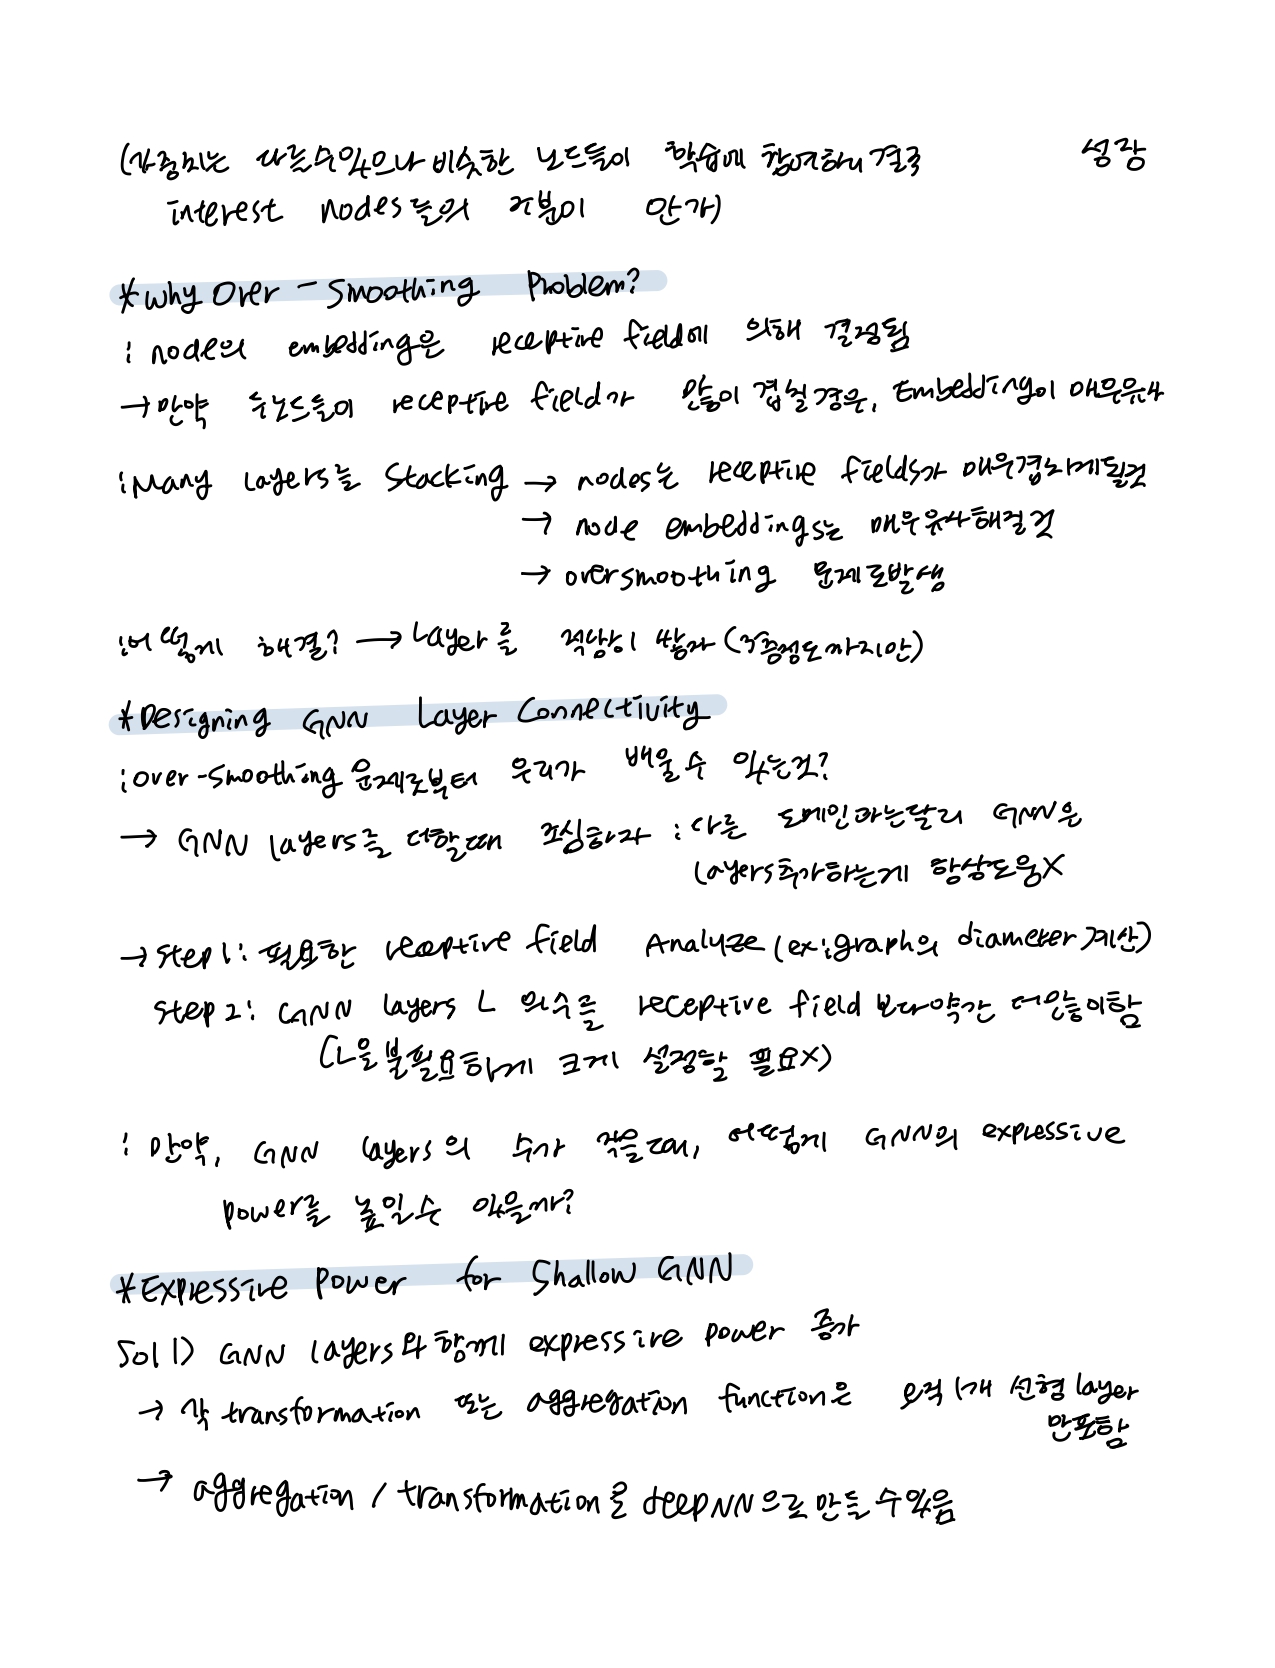 (가중치는 다를수있으나 비슷한 노드들이 학습에 참여하니 결국 성장
interest nodes들의 구분이 안가)
*Why Over-Smoothing Problem?
: node의 embedding은 receptive field에 의해 결정됨
→ 만약 두노드들이 receptive field가 많이 겹칠경우, Embedding이 매우유사
: Many layers를 Stacking → nodes는 receptive fields가 매우겹치게될것
→ node embeddings는 매우유사해질것
→ oversmoothing 문제로발생
:어떻게 해결? → Layer를 적당히 쌓자 (3층정도까지만)
*Designing GNN Layer Connectivity
: Over-smoothing 문제로부터 우리가 배울수 있는것?
→ GNN layers를 더할때 조심하자 : 다른 도메인과는달리 GNN은
layers추가하는게 항상도움X
→ Step 1: 필요한 receptive field Analyze (ex: graph의 diameter 계산)
Step 2: GNN layers L 의수를 receptive field 보다약간 더많이함
(L을불필요하게 크게 설정할 필요X)
: 만약, GNN layers의 수가 작을때, 어떻게 GNN의 expressive
power를 높일수 있을까?
*Expressive Power for Shallow GNN
Sol 1) GNN layers와 함께 expressive power 증가
→ 각 transformation 또는 aggregation function은 오직 1개 선형 layer
만포함
→ aggregation / transformation을 deep NN으로 만들 수있음